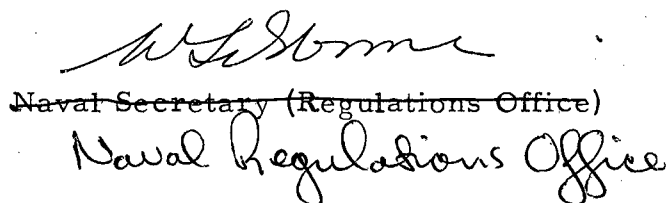 Naval Secretary (Regulations Office)
Naval Regulations Office